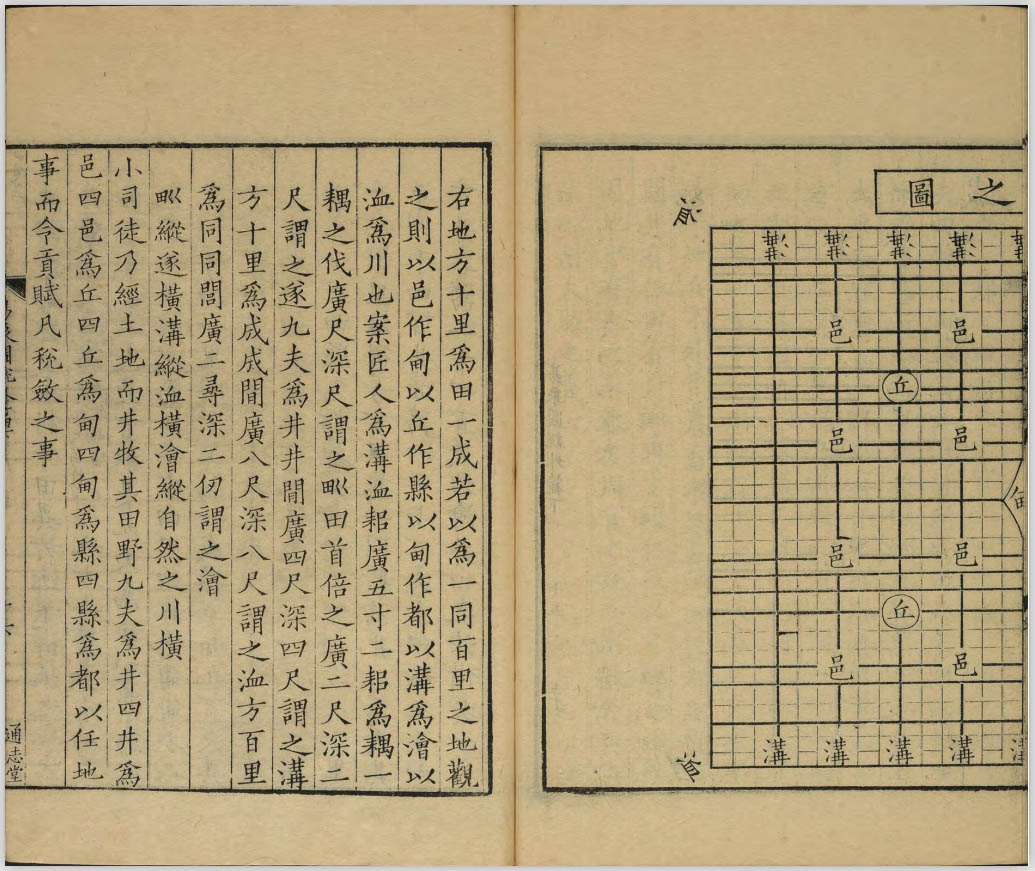 之圖
洫
溝 溝 溝 溝
邑 邑
丘
邑 邑
甸
邑 邑
丘
邑 邑
溝 溝 溝 溝 溝
洫
右地方十里爲田一成若以爲一同百里之地觀
之則以邑作甸以丘作縣以甸作都以溝爲澮以
洫爲川也案匠人爲溝洫耜廣五寸二耜爲耦一
耦之伐廣尺深尺謂之𤰕田首倍之廣二尺深二
尺謂之遂九夫爲井井間廣四尺深四尺謂之溝
方十里爲成成間廣八尺深八尺謂之洫方百里
爲同同間廣二尋深二仞謂之澮
𤰕縱遂橫溝縱洫橫澮縱自然之川橫
小司徒乃經土地而井牧其田野九夫爲井四井爲
邑四邑爲丘四丘爲甸四甸爲縣四縣爲都以任地
事而令貢賦凡稅斂之事
通志堂